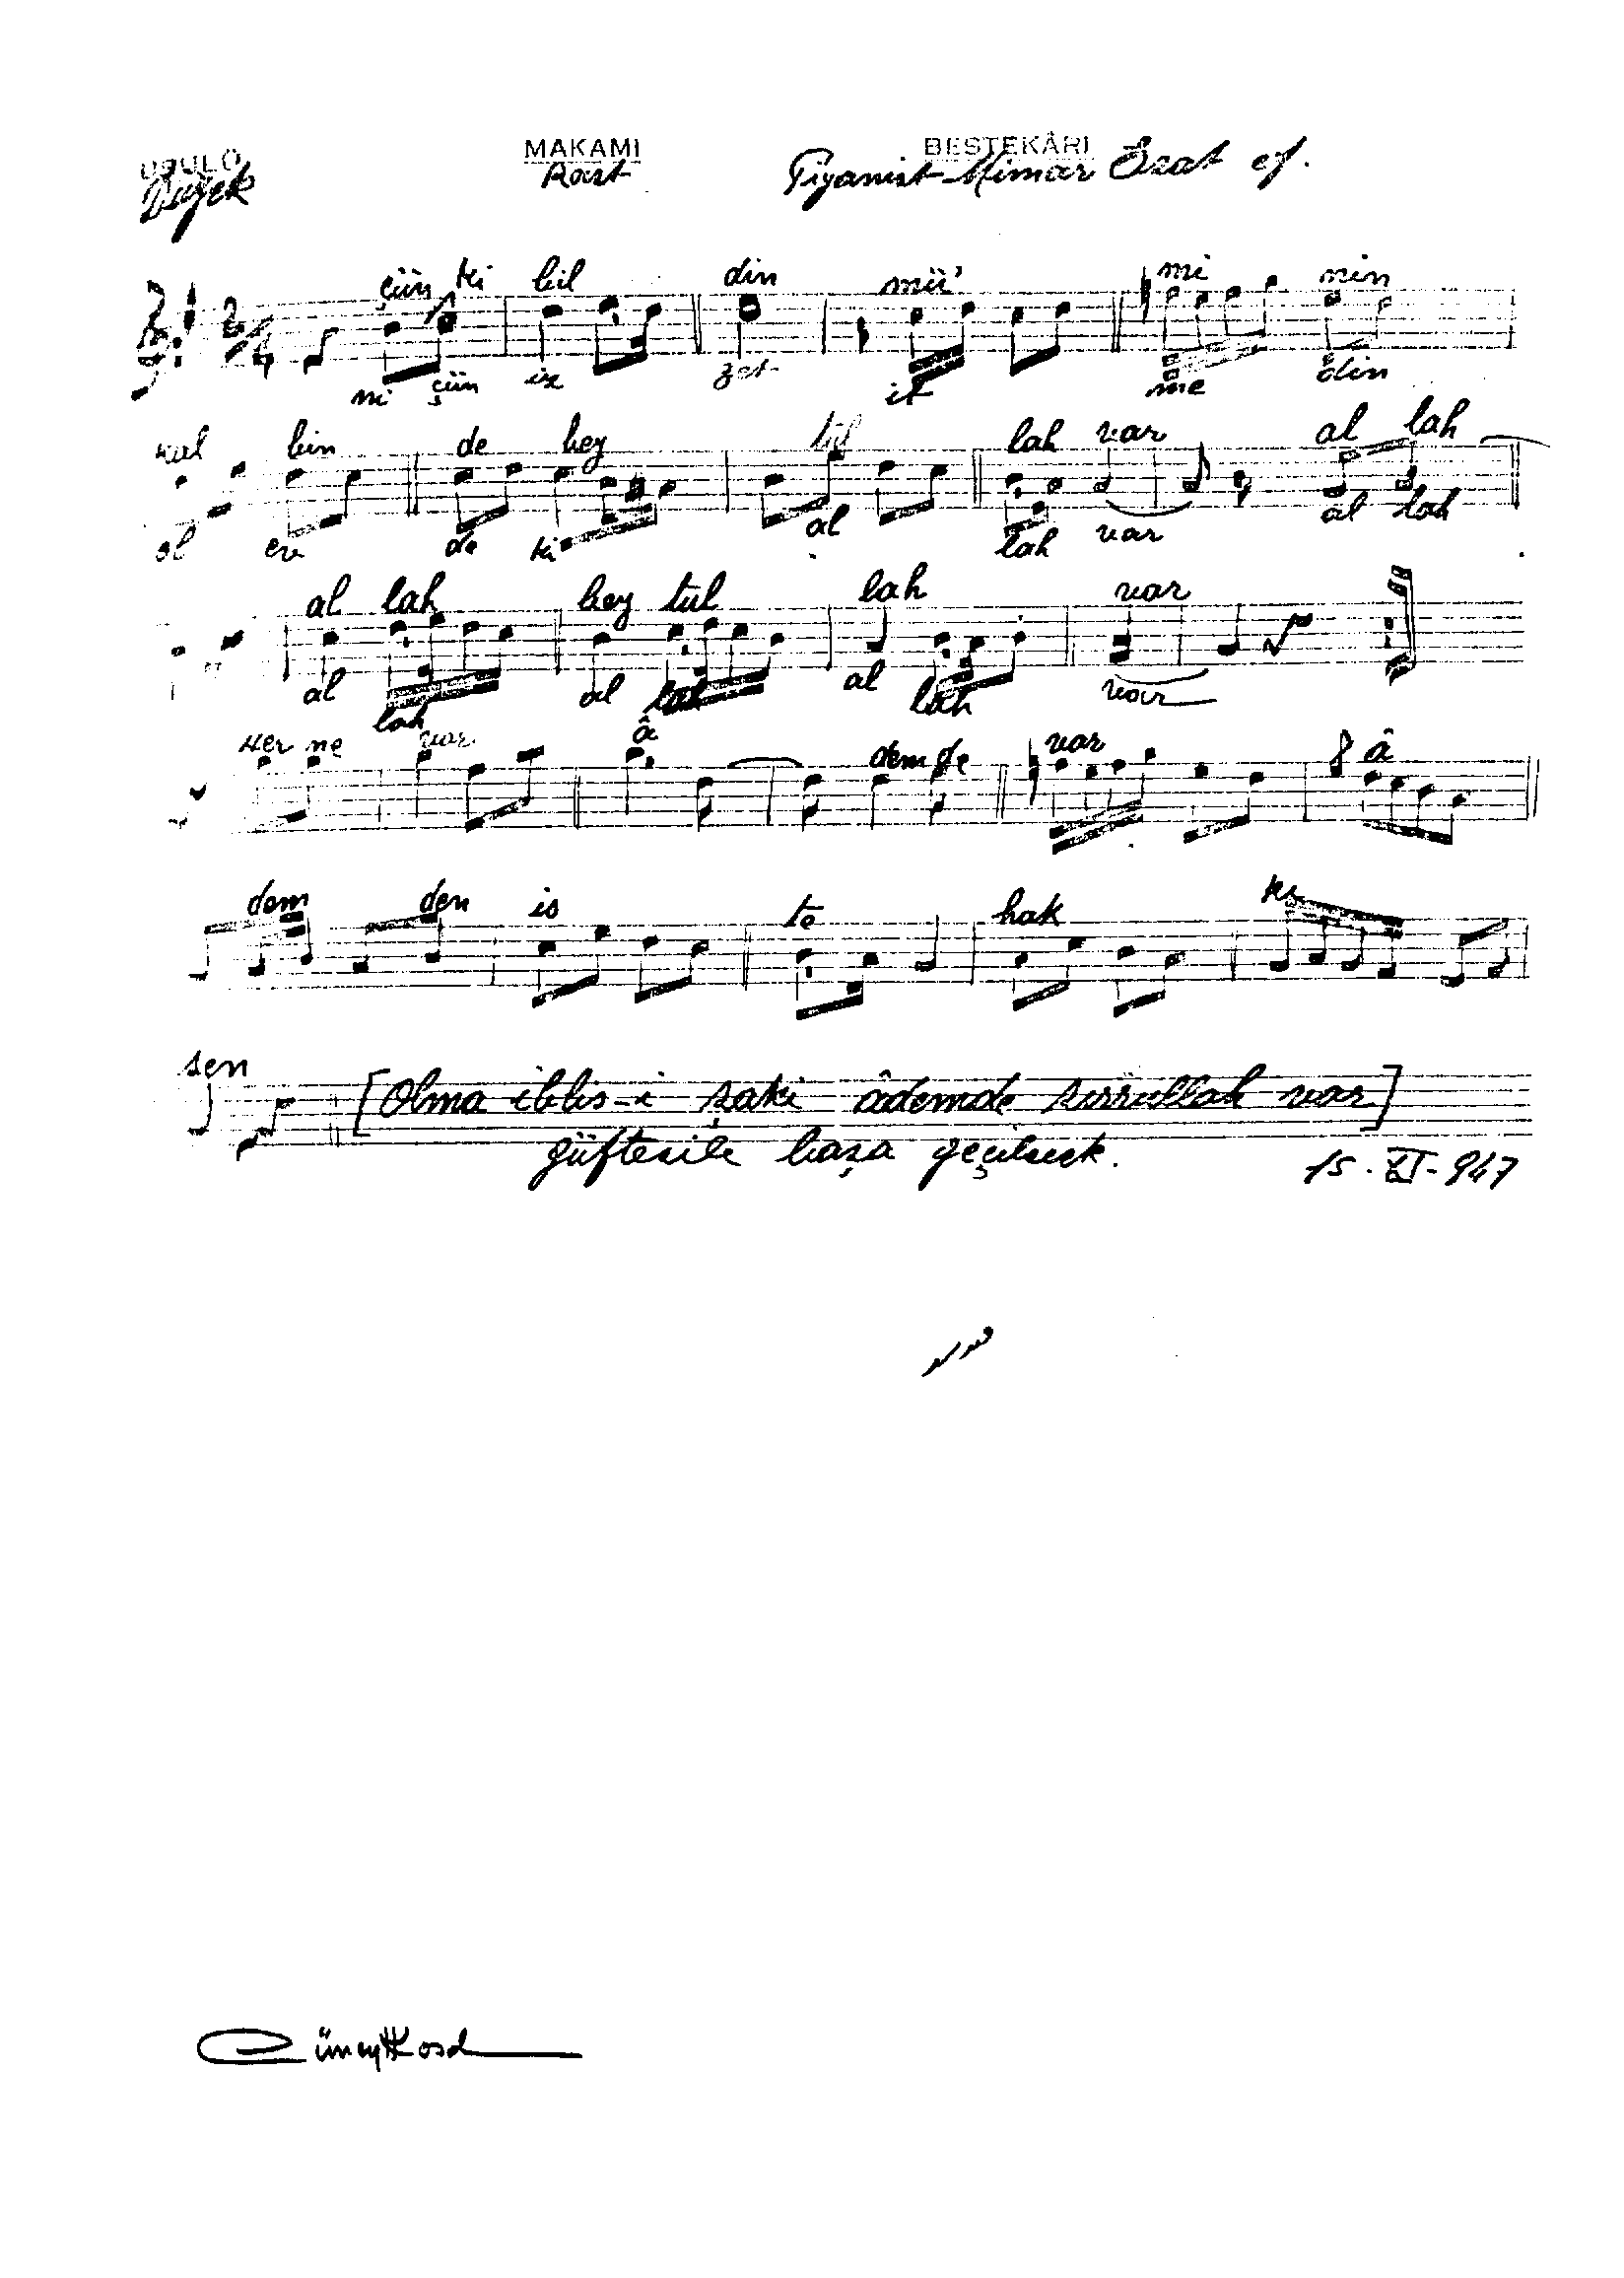 USULÜ MAKAMI BESTEKÂRI
Düyek Rast Piyanist Mimar Esat ef.
çün ki bil din mü' mi nin
ni çün iz zet it me din
kal bin de bey tül lah var al lah
ol ev de ki al lah var al lah
al lah bey tül lah var
al lah al lah al lah var
her ne var â dem de var â
dem den is te hak kı
sen
[Olma iblis-i şaki âdemde sırrullah var]
güftesile başa geçilecek. 15-XI-947
Cüneyd Kosal